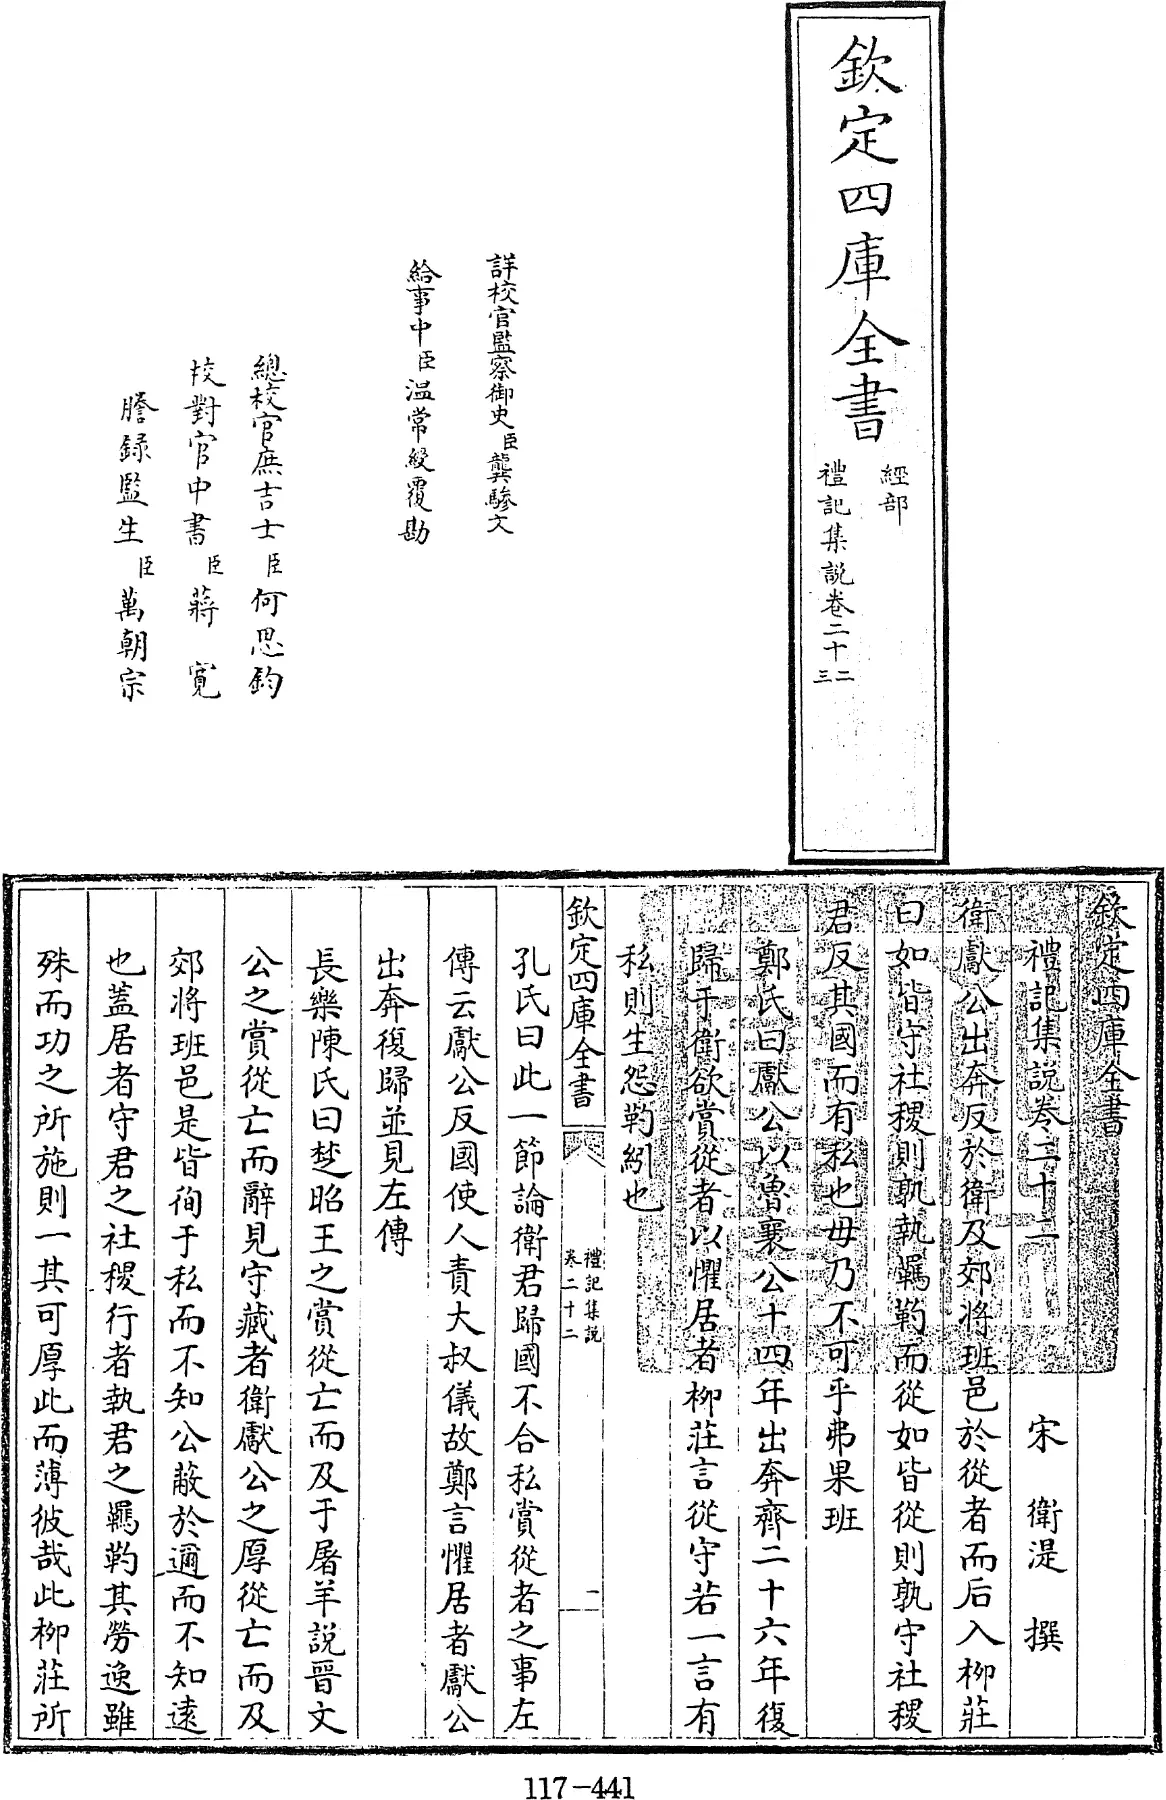 欽定四庫全書
經部
禮記集說卷二十二
三
詳校官監察御史臣龔驂文
給事中臣溫常綬覆勘
總校官庶吉士臣何思鈞
校對官中書臣蔣寬
謄錄監生臣萬朝宗
欽定四庫全書
禮記集說卷二十二
宋 衛湜 撰
衛獻公出奔反於衛及郊將班邑於從者而后入柳莊
曰如皆守社稷則孰執羈靮而從如皆從則孰守社稷
君反其國而有私也毋乃不可乎弗果班
鄭氏曰獻公以魯襄公十四年出奔齊二十六年復
歸于衛欲賞從者以懼居者柳莊言從守若一言有
私則生怨靮紖也
欽定四庫全書
禮記集說
卷二十二
一
孔氏曰此一節論衛君歸國不合私賞從者之事左
傳云獻公反國使人責大叔儀故鄭言懼居者獻公
出奔復歸並見左傳
長樂陳氏曰楚昭王之賞從亡而及于屠羊說晉文
公之賞從亡而辭見守藏者衛獻公之厚從亡而及
郊將班邑是皆徇于私而不知公蔽於邇而不知遠
也蓋居者守君之社稷行者執君之羈靮其勞逸雖
殊而功之所施則一其可厚此而薄彼哉此柳莊所
117-441